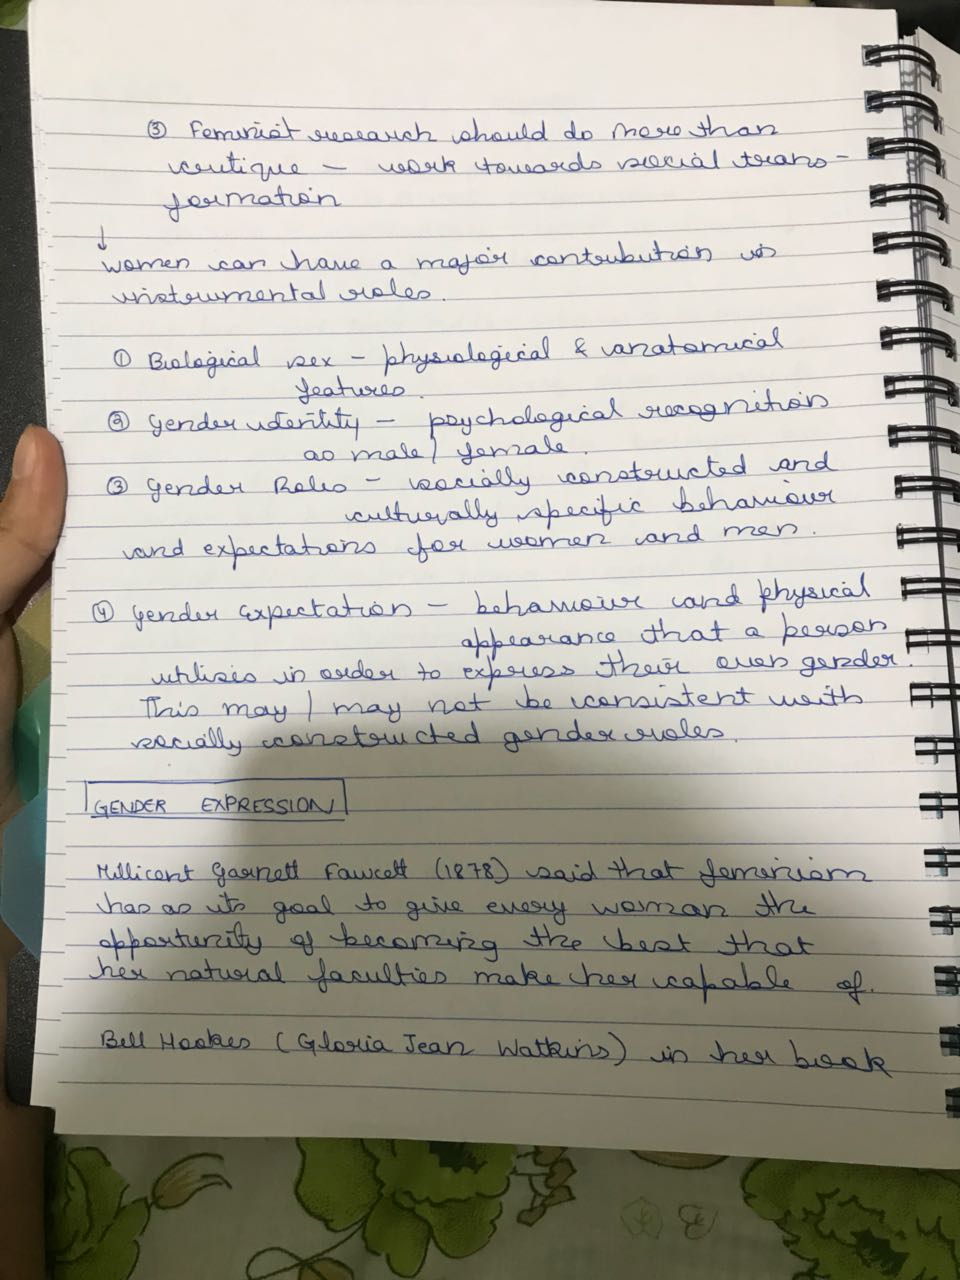 ③ Feminist research should do more than
critique – work towards social trans-
formation
↓
women can have a major contribution in
instrumental roles.
① Biological sex – physiological & anatomical
features.
② Gender identity – psychological recognition
as male/female.
③ Gender Roles – socially constructed and
culturally specific behaviour
and expectations for women and men.
④ Gender Expectation – behaviour and physical
appearance that a person
utilises in order to express their own gender.
This may/may not be consistent with
socially constructed gender roles.
GENDER EXPRESSION
Millicent Garnett Fawcett (1878) said that feminism
has as its goal to give every woman the
opportunity of becoming the best that
her natural faculties make her capable of.
Bell Hookes (Gloria Jean Watkins) in her book